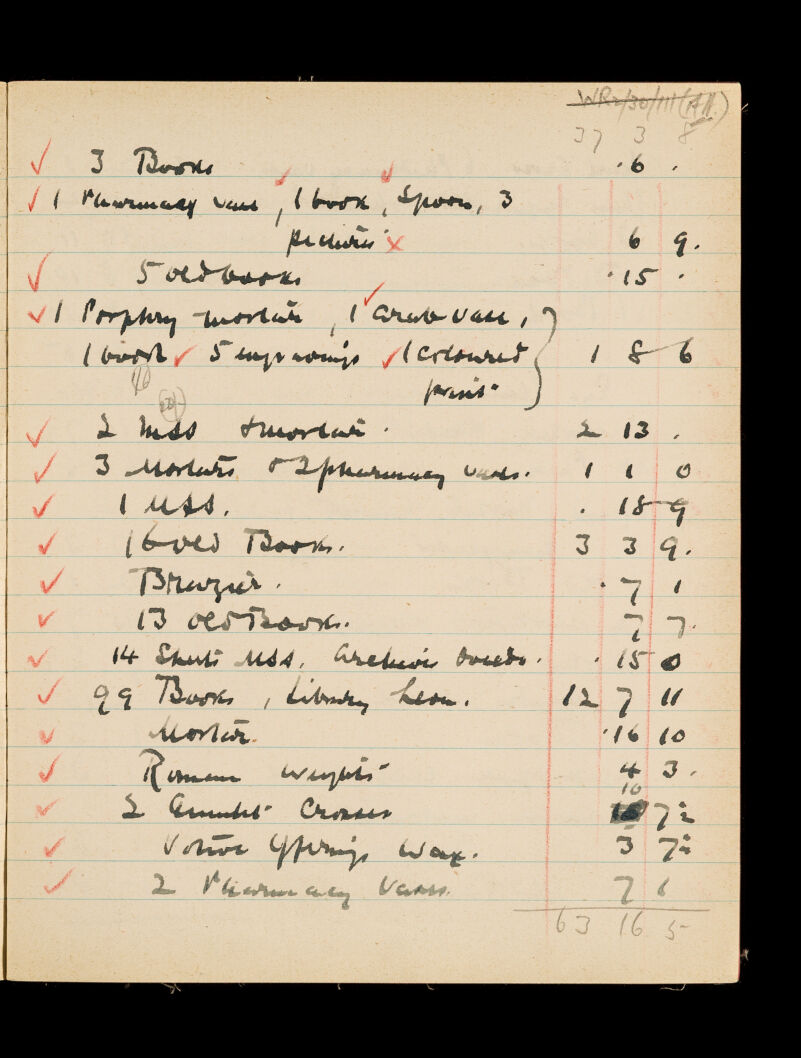 WR2/30/11 (A11.)
37 3 8
3 Books . 6 .
1 Pharmacy vase, 1 book, Spoon, 3
pictures x 6 9.
5 old books . 15 .
1 Porphry mortar, 1 Arab vase,
1 book 5 engravings 1 coloured 1 8 6
print
2 MSS & mortar . 2 13 .
3 Mortars & 2 pharmacy vases. 1 1 0
1 MSS. . 18 9
16 old Books. 3 3 9.
Brazier . . 7 1
13 old Books. 7 7.
14 Sheets MSS. Archivio . 15 0
99 Books, Library Leon. 12 7 11
Mortar. . 16 10
Roman weights 4 3.
10
2 Amulet Crosses 7½
Votive Offerings Wax. 3 7½
2 Pharmacy Vases 7 1
63 16 5